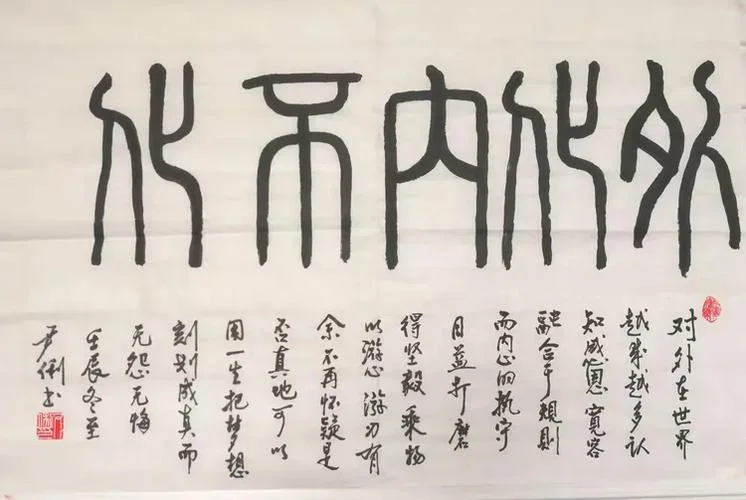 外化内不化
对外在世界
越来越多认
知感恩寬容
融合于規則
而内心的执守
日益打磨
得坚毅乘物
以游心游刃有
余不再怀疑是
否真地可以
用一生把梦想
刻划成真而
无怨无悔
壬辰冬至
尹俐书